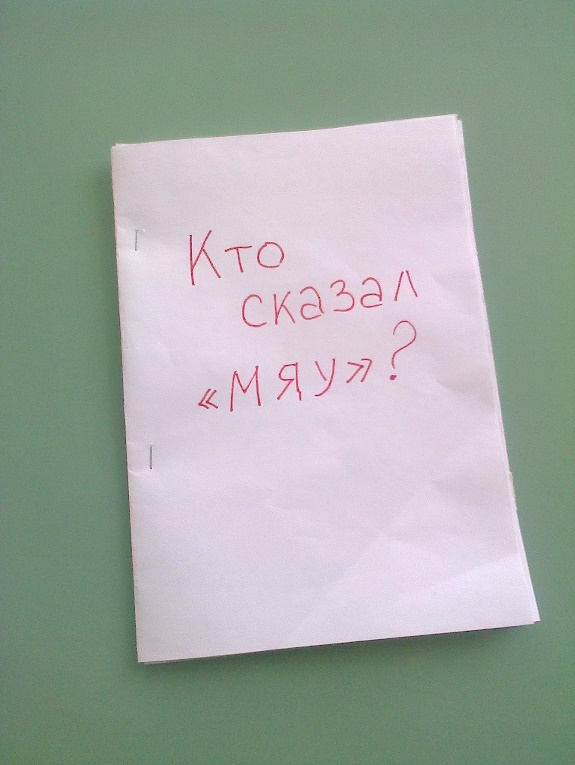 Кто
сказал
«мяу»?